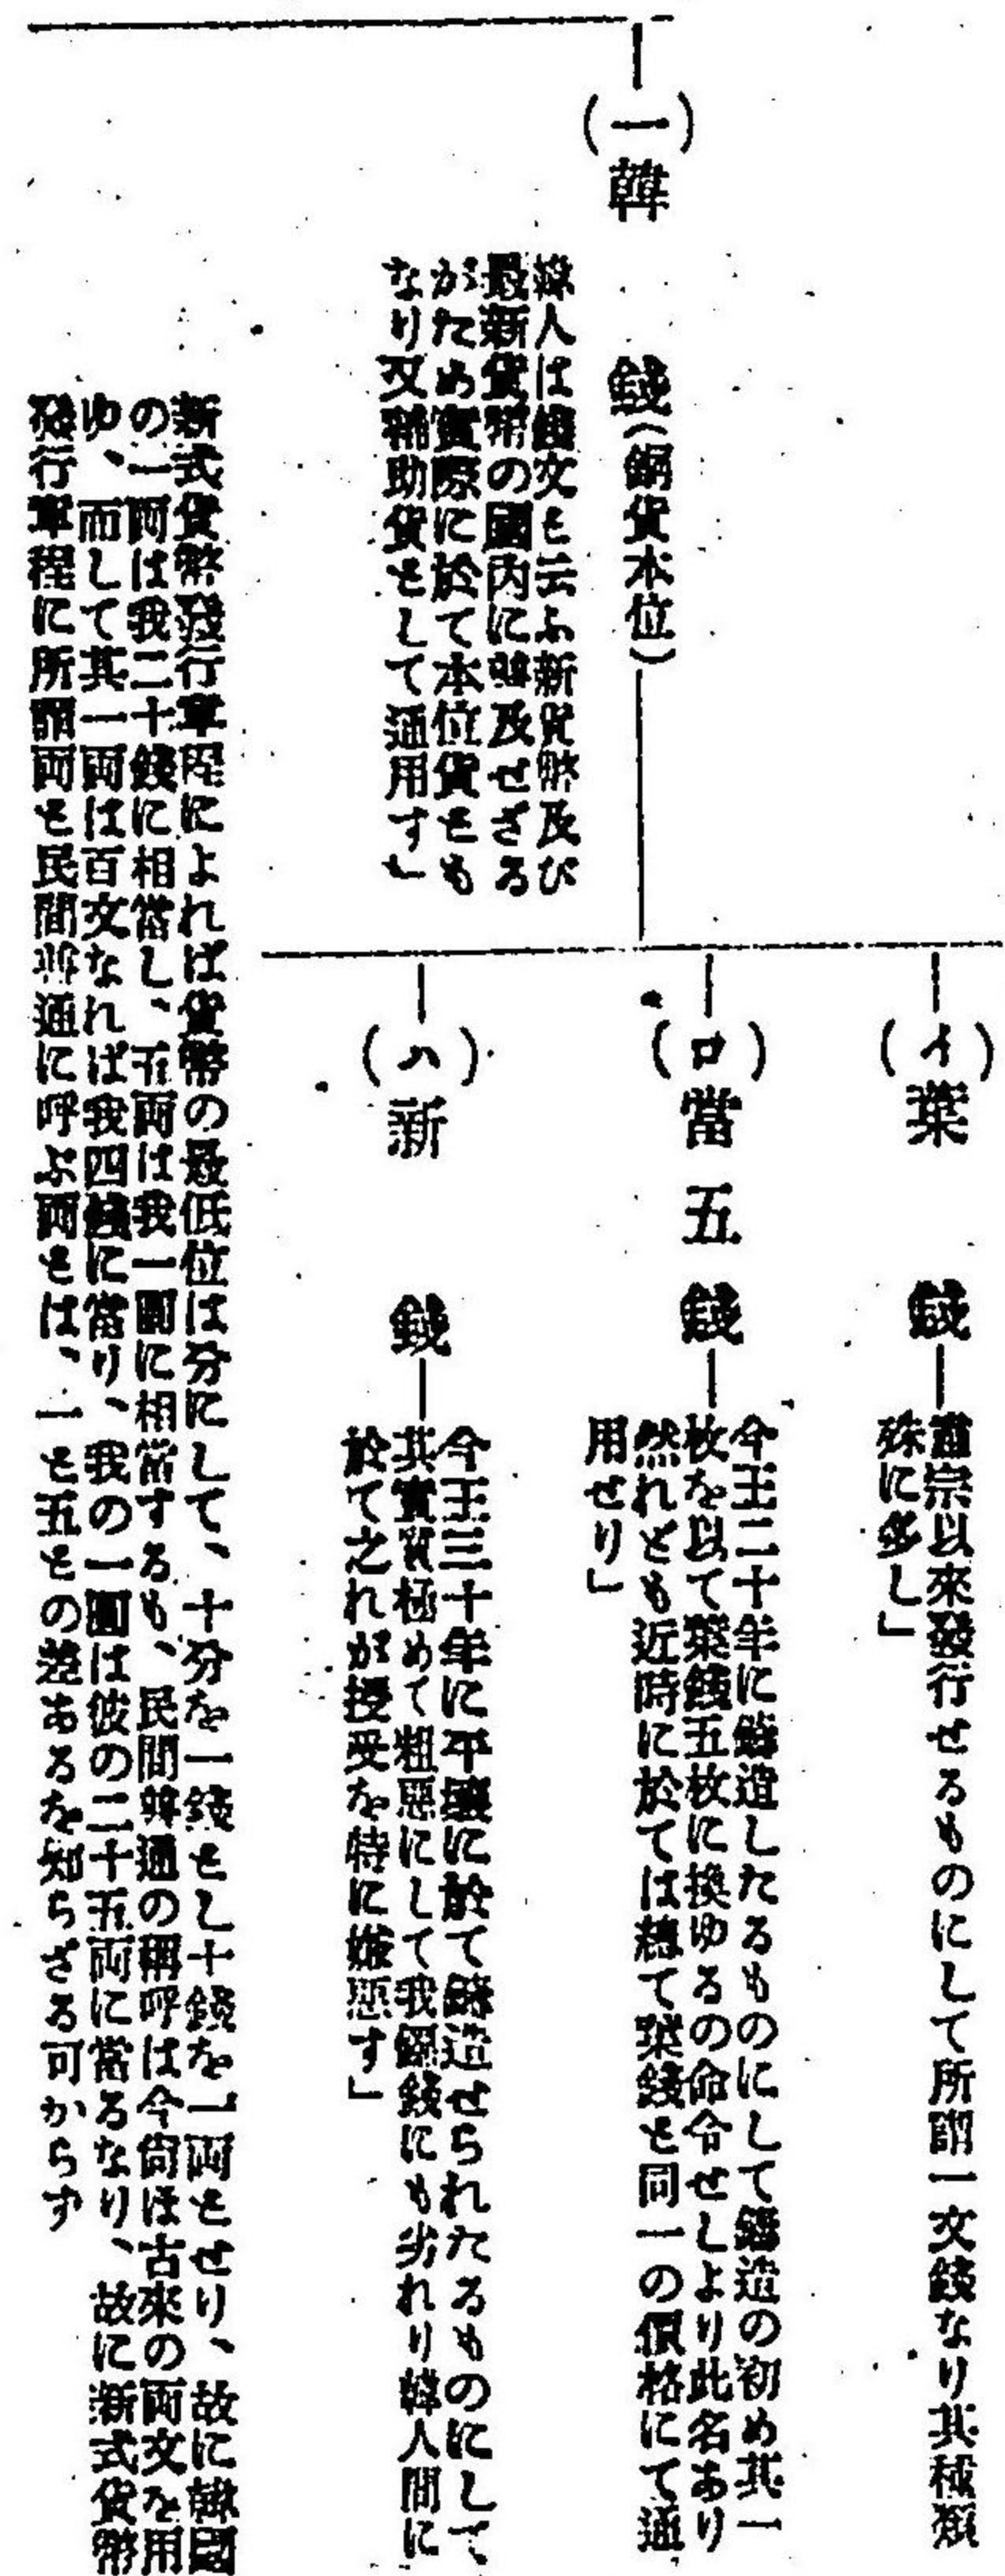 (一)韓　錢(銅貨本位)
韓人は錢文と云ふ新貨幣及び
最新貨幣の國内に普及せざる
がため實際に於て本位貨とも
なり又補助貨として通用す」
(イ)葉　錢
肅宗以來發行せるものにして所謂一文錢なり其種類
殊に多し」
(ロ)當五錢
今王二十年に鑄造したるものにして鑄造の初め其一
枚を以て葉錢五枚に換ゆるの命令せしより此名あり
然れども近時に於ては總て葉錢と同一の價格にて通
用せり」
(ハ)新　錢
今王三十年に平壤に於て鑄造せられたるものにして
其實質極めて粗惡にして我鐚錢にも劣れり韓人間に
於て之れが授受を特に嫌惡す」
新式貨幣發行章程によれば貨幣の最低位は分にして、十分を一錢とし十錢を一兩とせり、故に韓國
の一兩は我二十錢に相當し、五兩は我一圓に相當するも、民間普通の稱呼は今尙ほ古來の兩文を用
ゆ、而して其一兩は百文なれば我四錢に當り、我の一圓は彼の二十五兩に當るなり、故に新式貨幣
發行章程に所謂兩と民間普通に呼ぶ兩とは、一と五との差あるを知らざる可からず